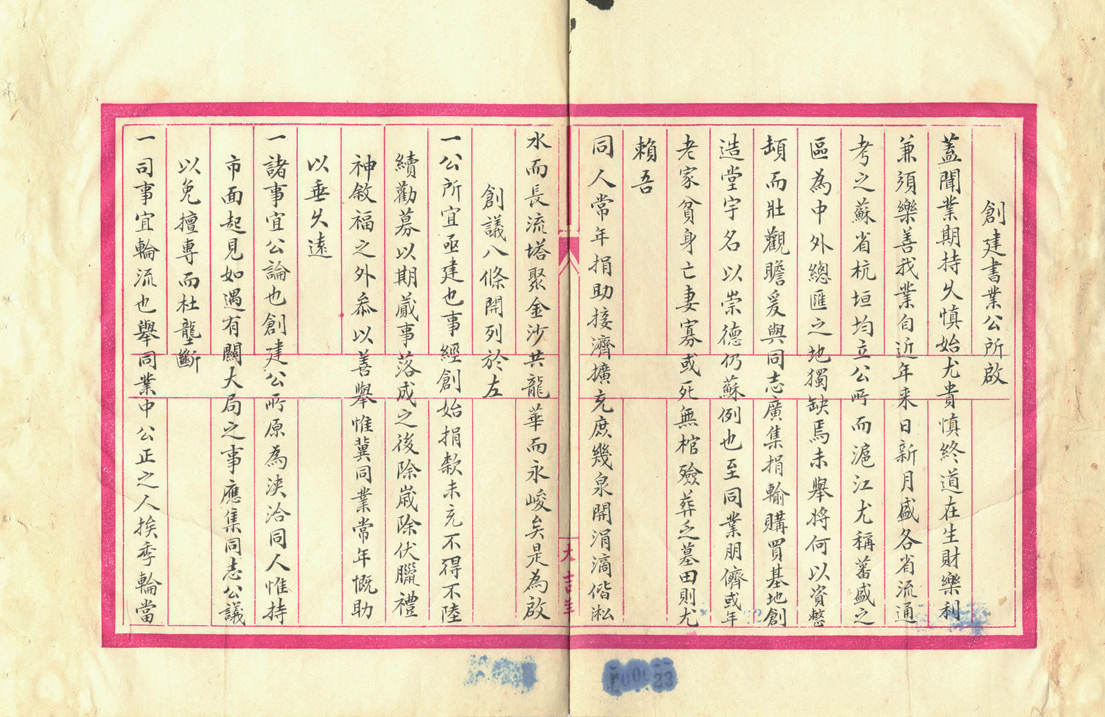 創建書業公所啟
蓋聞業期持久慎始尤貴慎終道在生財樂利
兼須樂善我業自近年来日新月盛各省流通
考之蘇省杭垣均立公所而滬江尤稱蕃盛之
區為中外總匯之地獨缺焉未舉將何以資整
頓而壯觀瞻爰與同志廣集捐輸購買基地創
造堂宇名以崇德仍蘇例也至同業朋儕或年
老家貧身亡妻寡或死無棺殮葬乏墓田則尤
賴吾
同人常年捐助接濟擴充庶幾泉開涓滴偕淞
水而長流塔聚金沙共龍華而永峻矣是為啟
創議八條開列於左
一公所宜亟建也事經創始捐款未充不得不陸
續勸募以期蕆事落成之後除歲除伏臘禮
神敘福之外叅以善舉惟冀同業常年慨助
以垂久遠
一諸事宜公論也創建公所原為浹洽同人惟持
市面起見如遇有關大局之事應集同志公議
以免擅專而杜壟斷
一司事宜輪流也舉同業中公正之人挨季輪當
大吉
23